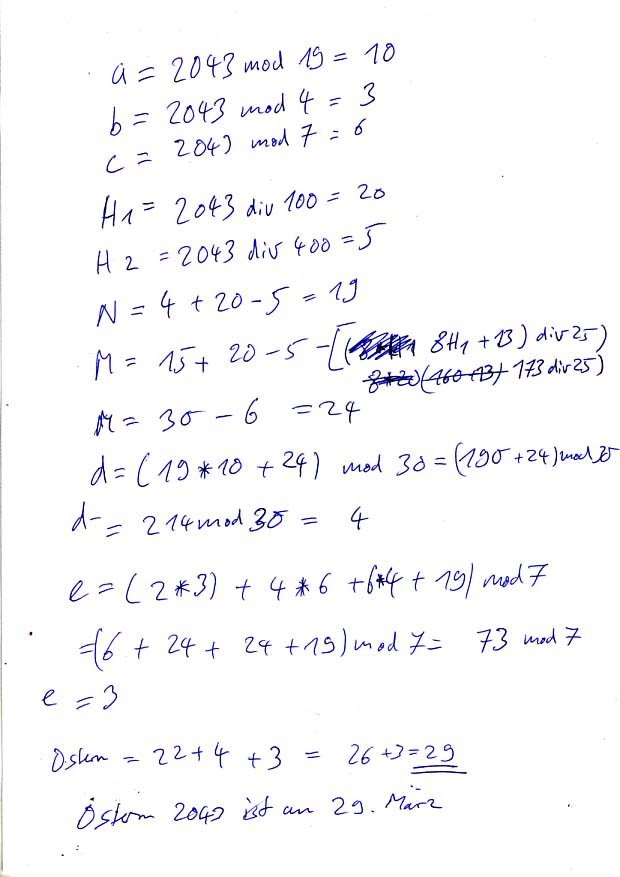 a = 2043 mod 19 = 10
b = 2043 mod 4 = 3
c = 2043 mod 7 = 6
H1 = 2043 div 100 = 20
H2 = 2043 div 400 = 5
N = 4 + 20 - 5 = 19
M = 15 + 20 - 5 - [( 8H1 + 13) div 25)
8*20 (160+13) 173 div 25)
M = 30 - 6 = 24
d = (19 * 10 + 24) mod 30 = (190 + 24) mod 30
d = 214 mod 30 = 4
e = (2*3) + 4*6 + 6*4 + 19) mod 7
= (6 + 24 + 24 + 19) mod 7 = 73 mod 7
e = 3
Ostern = 22 + 4 + 3 = 26 + 3 = 29
Ostern 2043 ist am 29. März